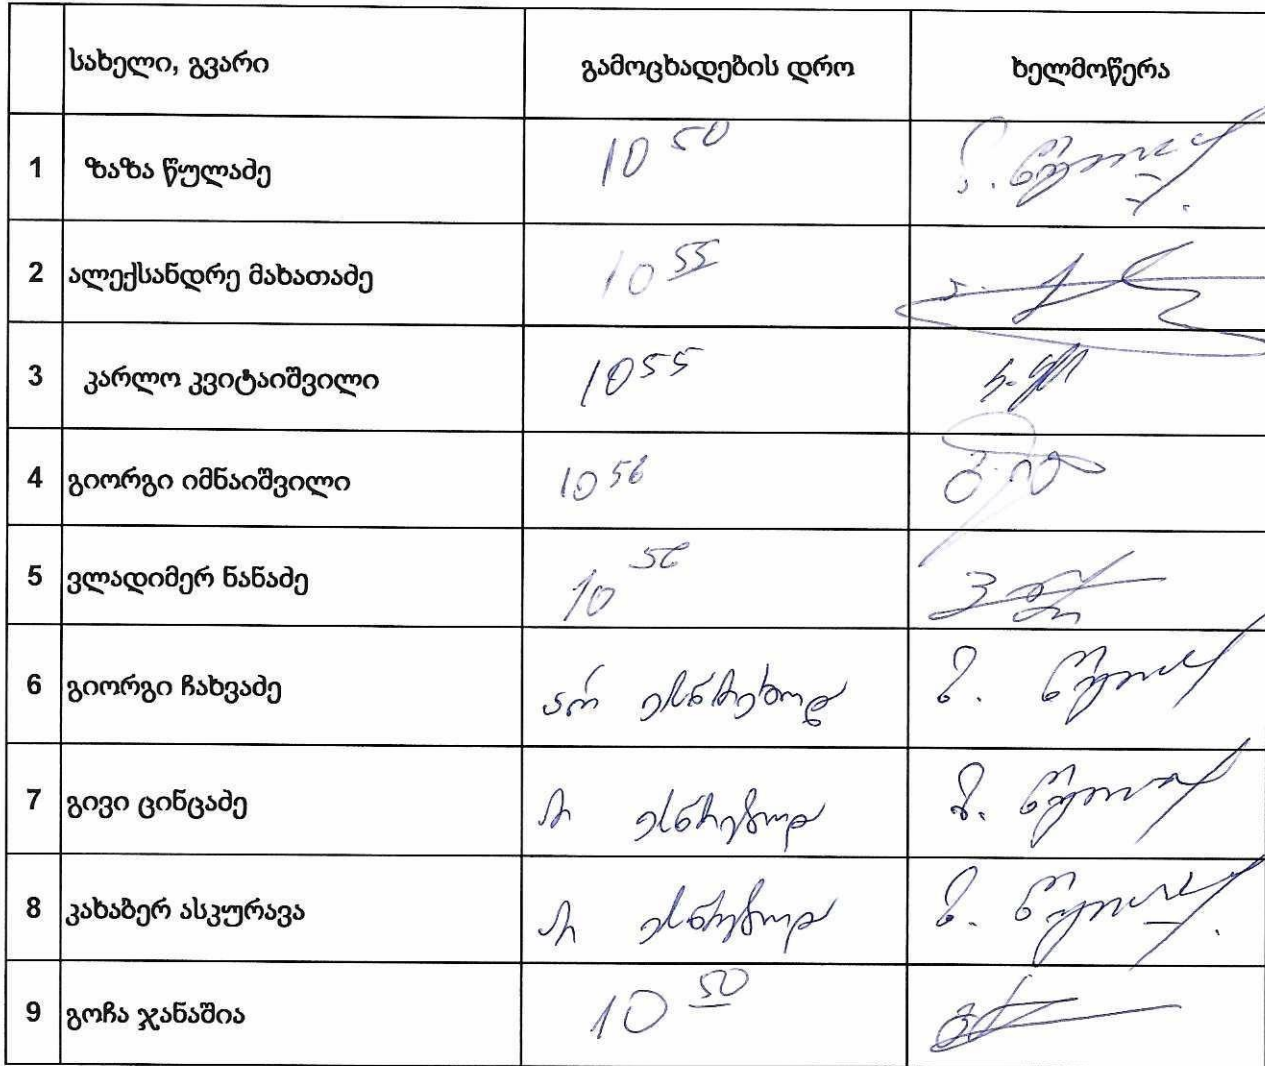 სახელი, გვარი გამოცხადების დრო ხელმოწერა
1 ზაზა წულაძე 10 50
2 ალექსანდრე მახათაძე 10 55
3 კარლო კვიტაიშვილი 10 55
4 გიორგი იმნაიშვილი 10 56
5 ვლადიმერ ნანაძე 10 56
6 გიორგი ჩახვაძე არ ესწრებოდა
7 გივი ცინცაძე არ ესწრებოდა
8 კახაბერ ასკურავა არ ესწრებოდა
9 გოჩა ჯანაშია 10 50